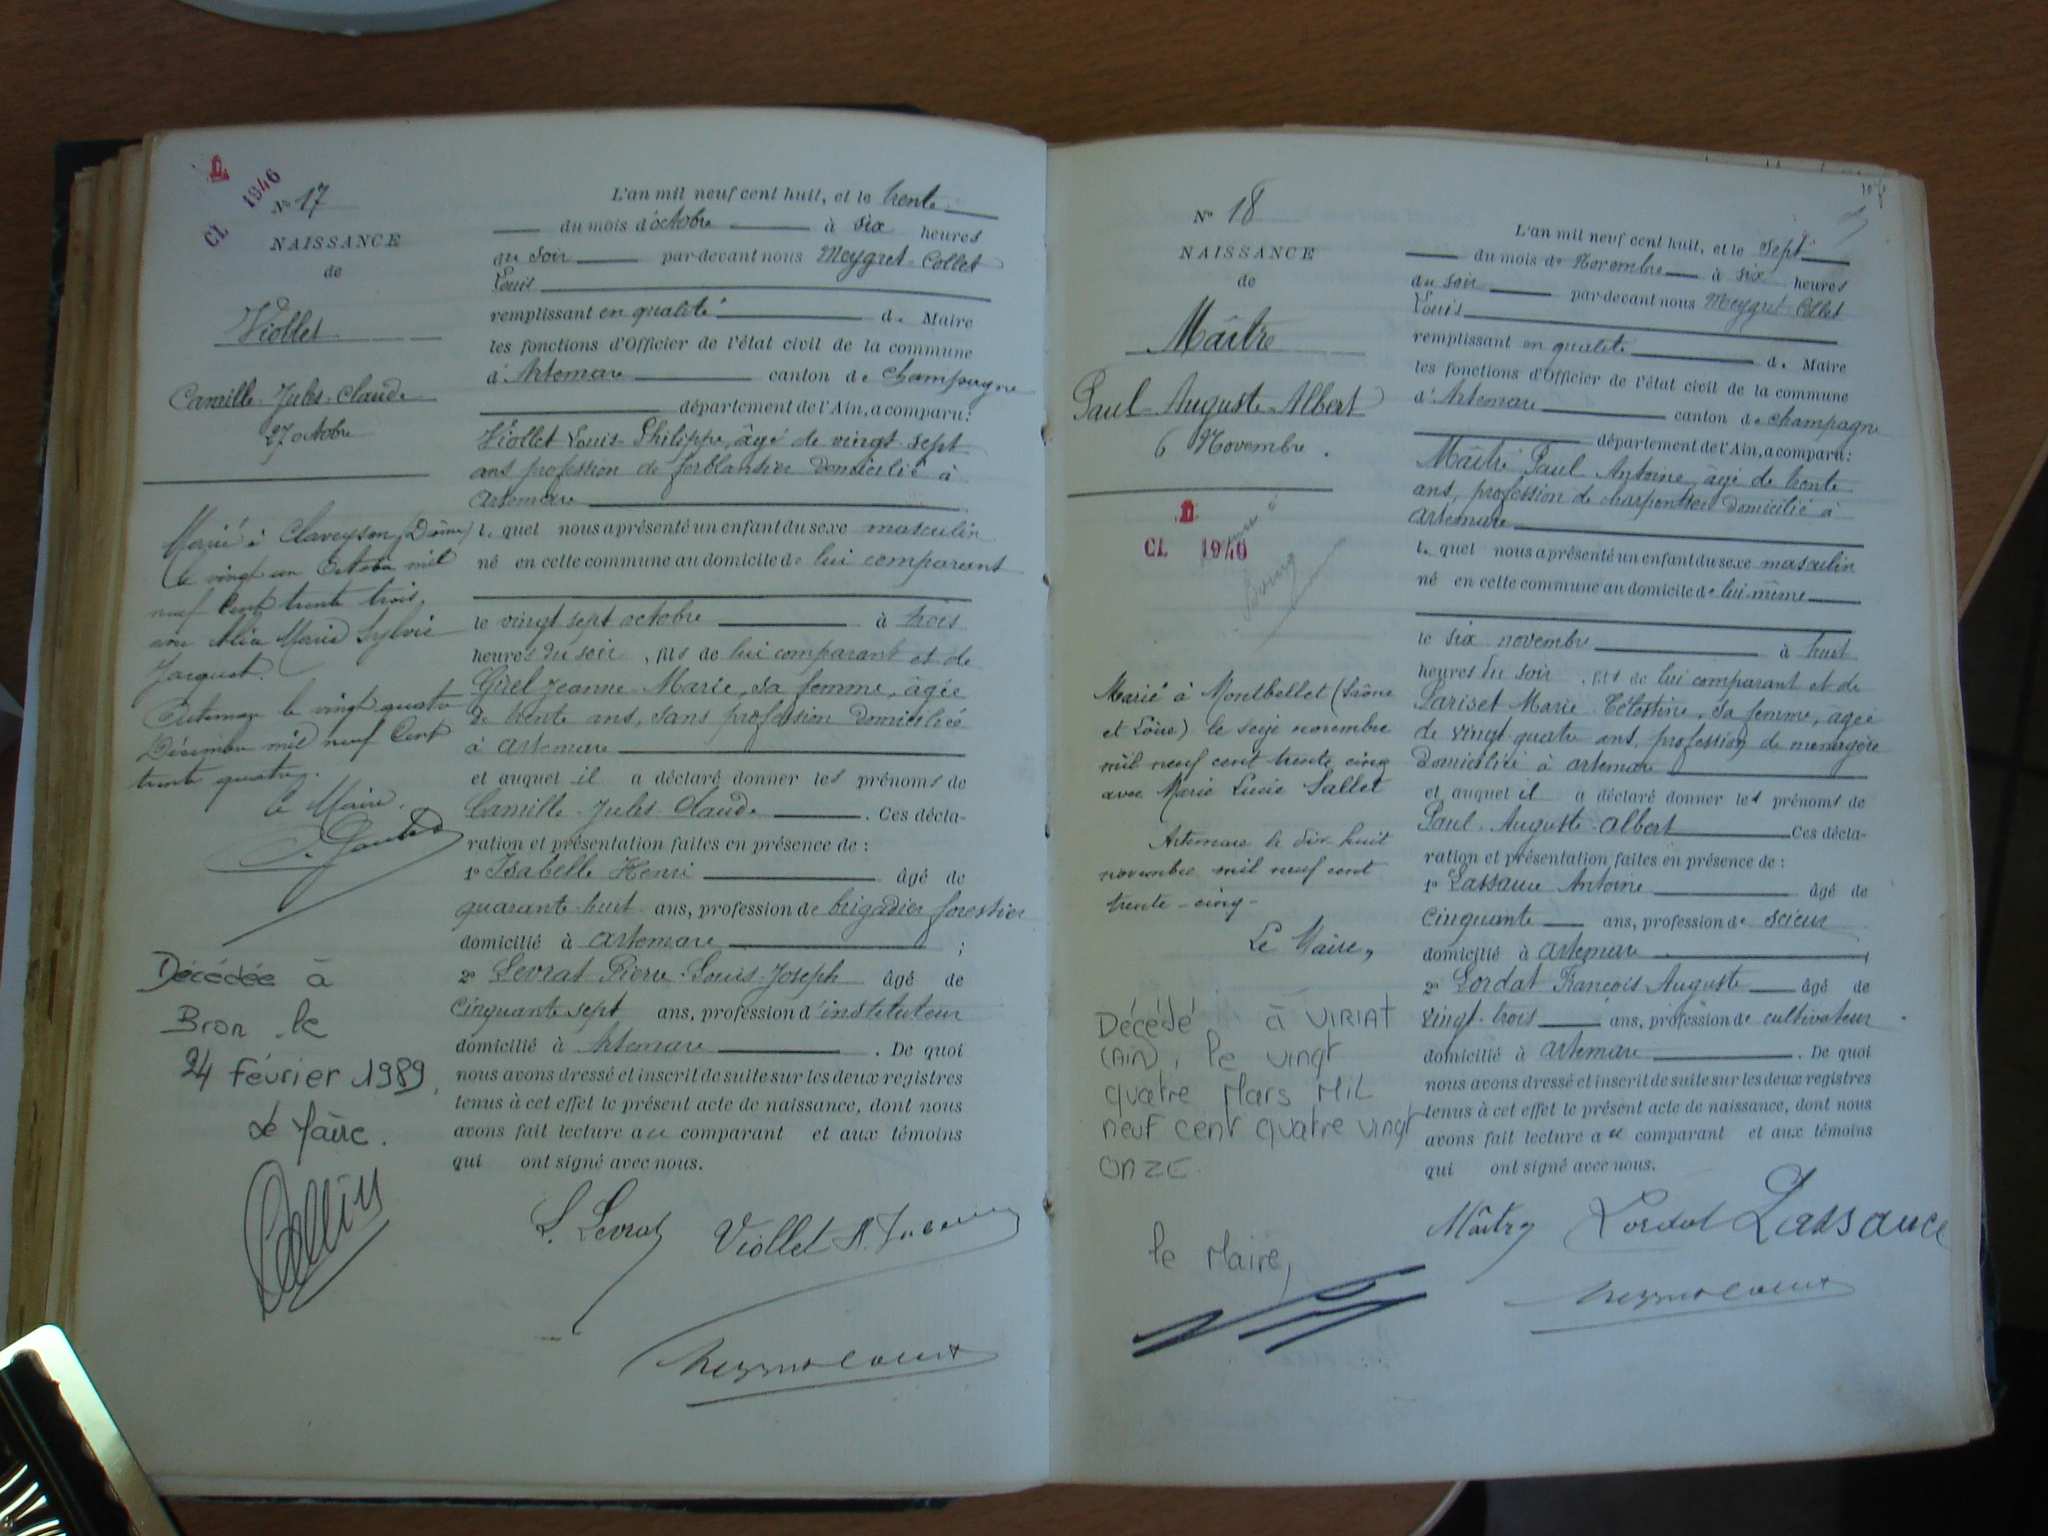 CL 1946
N° 17
NAISSANCE
de
Viollet
Camille-Jules-Claude
27 octobre
Marié à Claveyson (Drôme)
le vingt un Octobre mil
neuf Cent trente trois,
avec Alia Marie Sylvie
Jacquet.
Artemare le vingt quatre
Décembre mil neuf Cent
trente quatre.
Le Maire.
Décédée à
Bron le
24 février 1989.
Le Maire.
L'an mil neuf cent huit, et le trente
du mois d'octobre à six heures
du soir par-devant nous Meygret-Collet
Louis
remplissant en qualité de Maire
les fonctions d'Officier de l'état civil de la commune
d'Artemare canton de Champagne
département de l'Ain, a comparu:
Viollet Louis-Philippe, âgé de vingt-sept
ans profession de ferblantier domicilié à
Artemare
lequel nous a présenté un enfant du sexe masculin
né en cette commune au domicile de lui comparant
le vingt sept octobre à trois
heures du soir, fils de lui comparant et de
Girel Jeanne-Marie, sa femme, âgée
de trente ans, sans profession domiciliée
à Artemare
et auquel il a déclaré donner les prénoms de
Camille-Jules-Claude. Ces décla-
ration et présentation faites en présence de :
1° Isabelle Henri âgé de
quarante-huit ans, profession de brigadier forestier
domicilié à Artemare ;
2° Levrat Pierre-Louis-Joseph âgé de
cinquante sept ans, profession d'instituteur
domicilié à Artemare. De quoi
nous avons dressé et inscrit de suite sur les deux registres
tenus à cet effet le présent acte de naissance, dont nous
avons fait lecture au comparant et aux témoins
qui ont signé avec nous.
L. Levrat Viollet
N° 18
NAISSANCE
de
Maître
Paul-Auguste-Albert
6 Novembre.
CL 1940
Bourg
Marié à Montbellet (Saône
et Loire) le seize novembre
mil neuf cent trente cinq
avec Marie Lucie Sallet
Artemare le dix huit
novembre mil neuf cent
trente-cinq-
Le Maire,
Décédé à VIRIAT
(AIN), le vingt
quatre Mars MIL
neuf cent quatre vingt
ONZE.
le Maire,
L'an mil neuf cent huit, et le sept
du mois de Novembre à six heures
du soir par-devant nous Meygret-Collet
Louis
remplissant en qualité de Maire
les fonctions d'Officier de l'état civil de la commune
d'Artemare canton de Champagne
département de l'Ain, a comparu:
Maître Paul-Antoine, âgé de trente
ans, profession de charpentier domicilié à
Artemare
lequel nous a présenté un enfant du sexe masculin
né en cette commune au domicile de lui-même
le six novembre à huit
heures du soir, fils de lui comparant et de
Lariset Marie-Célestine, sa femme, âgée
de vingt-quatre ans, profession de ménagère
domiciliée à Artemare
et auquel il a déclaré donner les prénoms de
Paul-Auguste-Albert Ces décla-
ration et présentation faites en présence de :
1° Lassauce Antoine âgé de
cinquante ans, profession de scieur
domicilié à Artemare
2° Lordat François Auguste âgé de
vingt-trois ans, profession de cultivateur
domicilié à Artemare. De quoi
nous avons dressé et inscrit de suite sur les deux registres
tenus à cet effet le présent acte de naissance, dont nous
avons fait lecture au comparant et aux témoins
qui ont signé avec nous.
Maître Lordat Lassauce